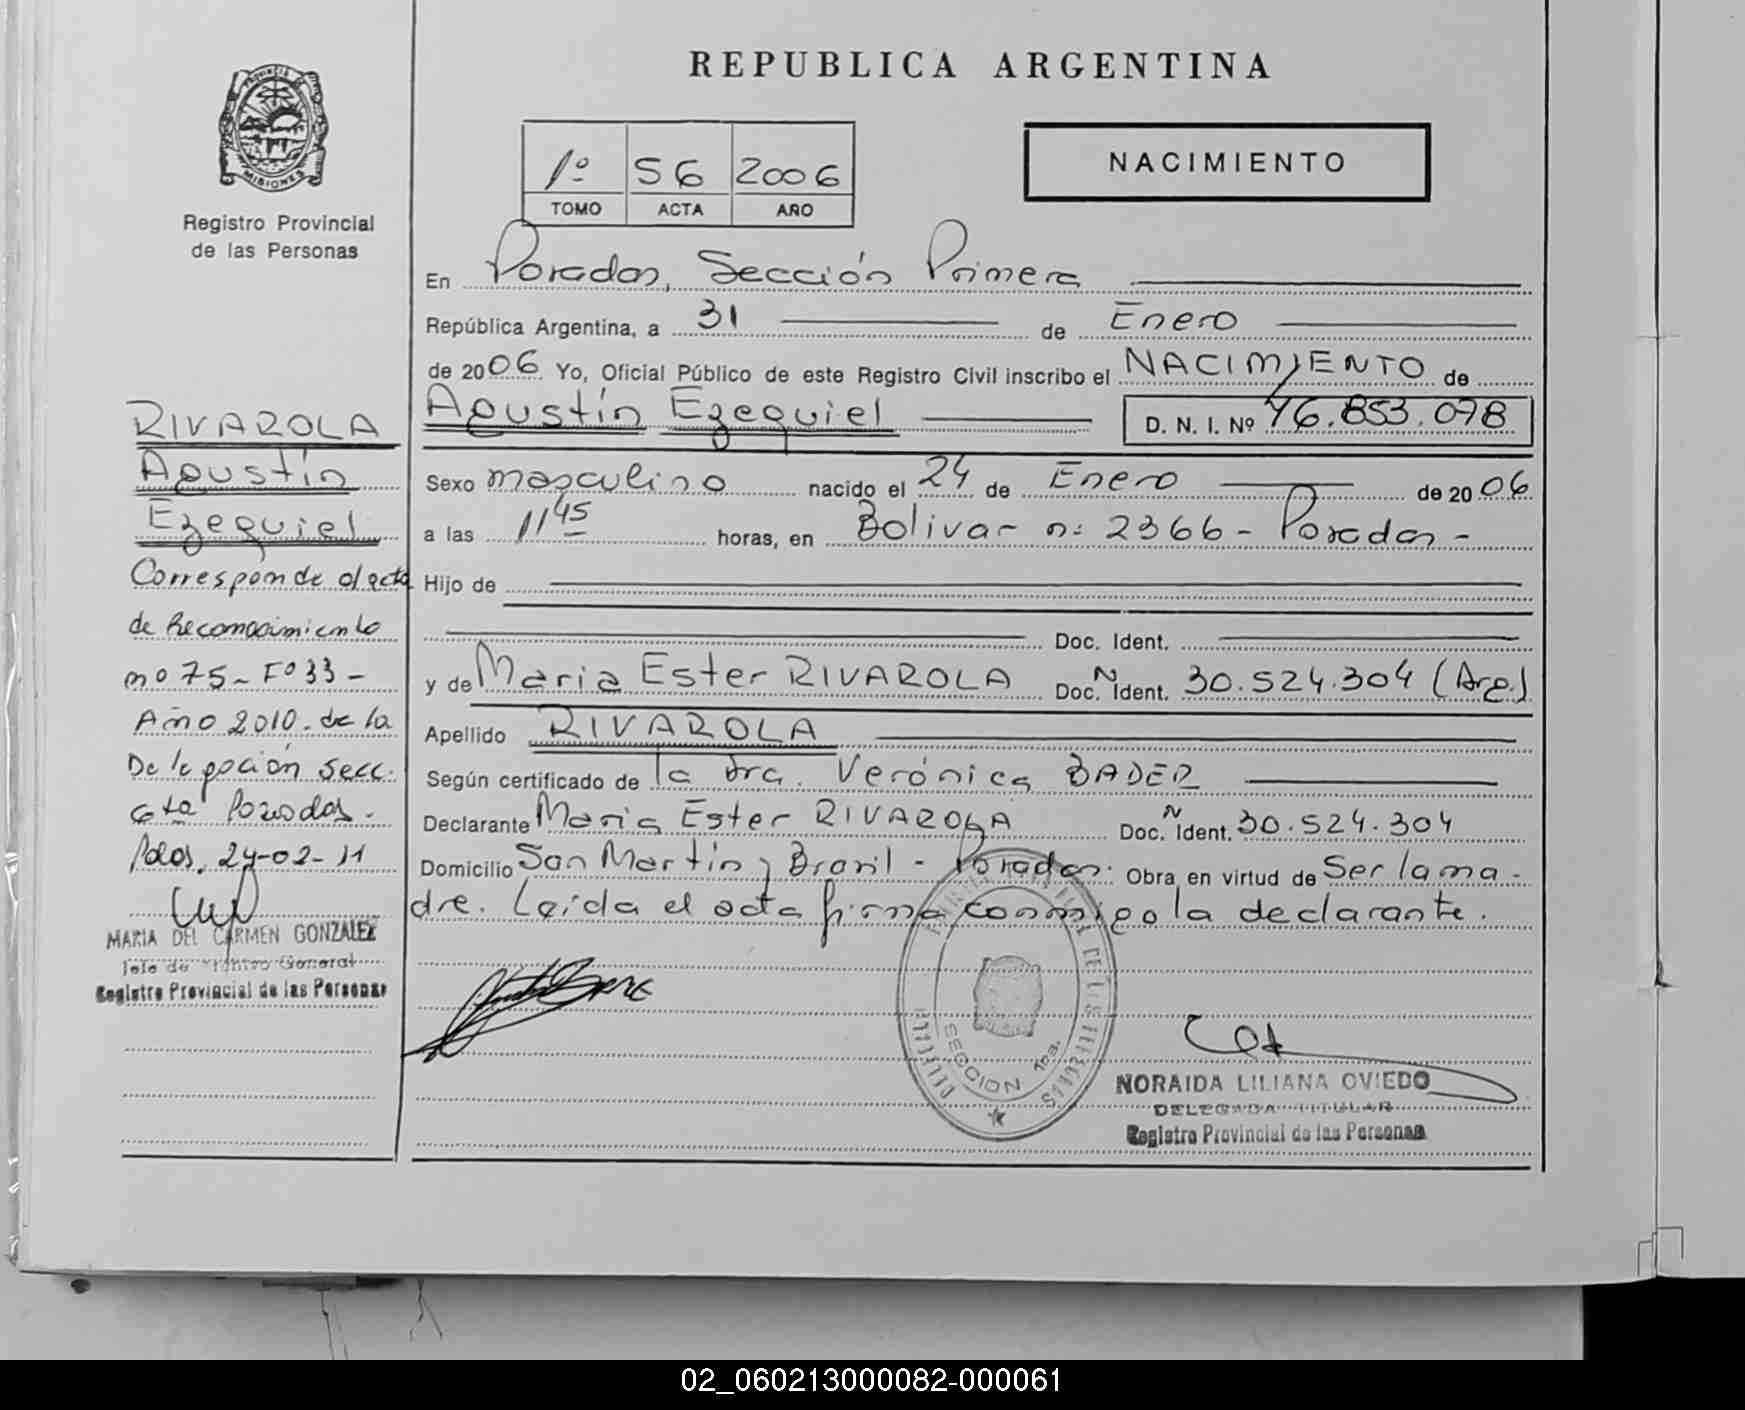 REPUBLICA ARGENTINA
MISIONES
Registro Provincial
de las Personas
1º 56 2006
TOMO ACTA AÑO
NACIMIENTO
En Posadas, Sección Primera
República Argentina, a 31 de Enero
de 2006 Yo, Oficial Público de este Registro Civil inscribo el NACIMIENTO de
Agustín Ezequiel D. N. I. Nº 46.853.078
Sexo masculino nacido el 24 de Enero de 2006
a las 11 45 horas, en Bolivar n: 2366 - Posadas -
Hijo de
Doc. Ident.
y de Maria Ester RIVAROLA Doc. Ident. N 30.524.304 (Arg.)
Apellido RIVAROLA
Según certificado de la Dra. Verónica BADER
Declarante Maria Ester RIVAROLA Doc. Ident. N 30.524.304
Domicilio San Martín y Brasil - Posadas. Obra en virtud de Ser la ma-
dre. Leída el acta firma conmigo la declarante.
RIVAROLA
Agustín
Ezequiel
Corresponde al acta
de Reconocimiento
nº 75 - Fº 33 -
Año 2010. de la
Delegación secc.
6ta Posadas.
Pdas. 24-02-11
MARIA DEL CARMEN GONZALEZ
Jefe de General
Registro Provincial de las Personas
SECCION 1ra.
NORAIDA LILIANA OVIEDO
DELEGADA TITULAR
Registro Provincial de las Personas
02_060213000082-000061